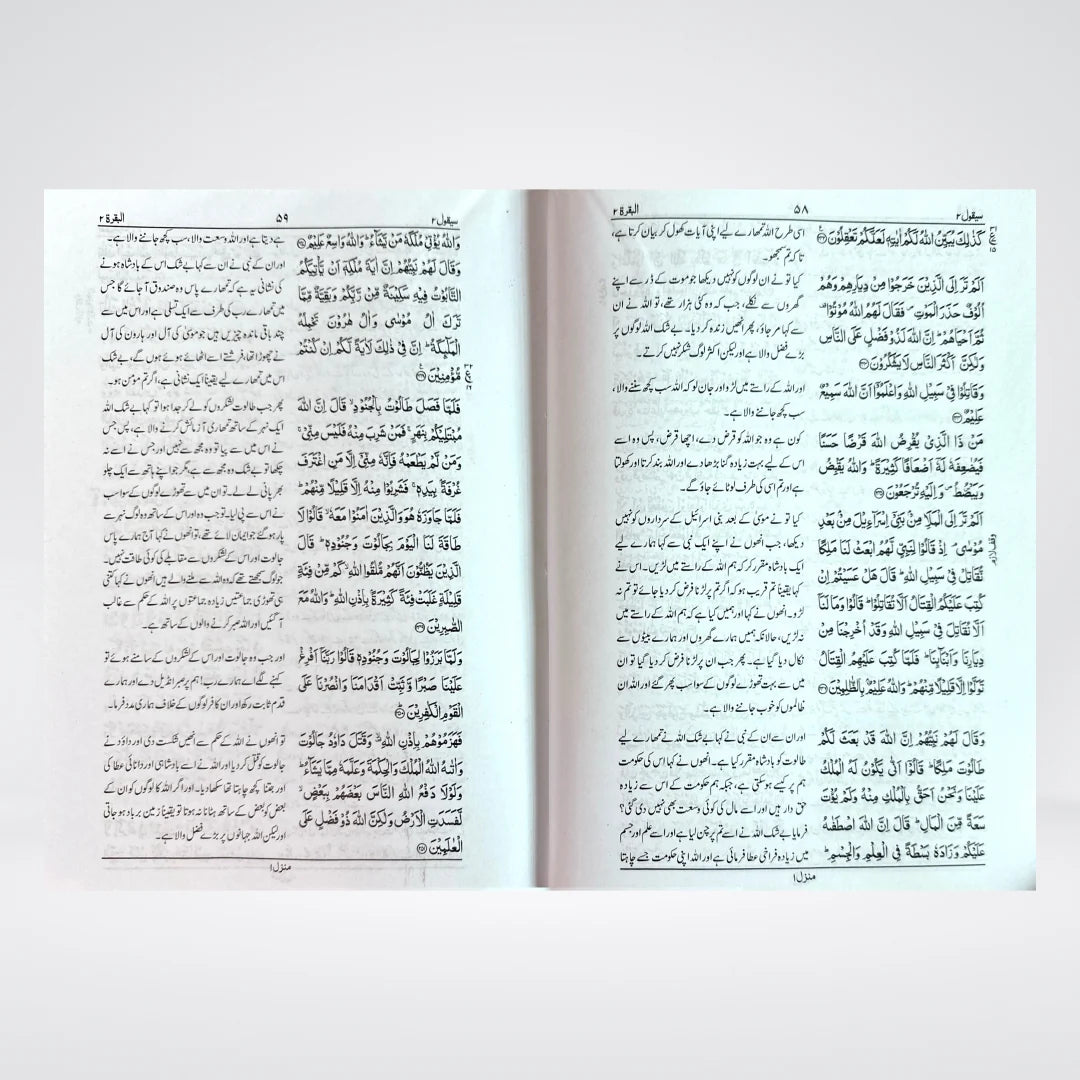 سیقول ۲
۵۸
البقرة ۲
كَذٰلِكَ يُبَيِّنُ اللّٰهُ لَكُمْ اٰيٰتِهٖ لَعَلَّكُمْ تَعْقِلُوْنَ ۝۲۴۲
اَلَمْ تَرَ اِلَى الَّذِيْنَ خَرَجُوْا مِنْ دِيَارِهِمْ وَهُمْ
اُلُوْفٌ حَذَرَ الْمَوْتِ ۪ فَقَالَ لَهُمُ اللّٰهُ مُوْتُوْا ۫
ثُمَّ اَحْيَاهُمْ ؕ اِنَّ اللّٰهَ لَذُوْ فَضْلٍ عَلَى النَّاسِ
وَلٰكِنَّ اَكْثَرَ النَّاسِ لَا يَشْكُرُوْنَ ۝۲۴۳
وَقَاتِلُوْا فِيْ سَبِيْلِ اللّٰهِ وَاعْلَمُوْۤا اَنَّ اللّٰهَ سَمِيْعٌ
عَلِيْمٌ ۝۲۴۴
مَنْ ذَا الَّذِيْ يُقْرِضُ اللّٰهَ قَرْضًا حَسَنًا
فَيُضٰعِفَهٗ لَهٗۤ اَضْعَافًا كَثِيْرَةً ؕ وَاللّٰهُ يَقْبِضُ
وَيَبْصُۜطُ ۪ وَاِلَيْهِ تُرْجَعُوْنَ ۝۲۴۵
اَلَمْ تَرَ اِلَى الْمَلَاِ مِنْۢ بَنِيْۤ اِسْرَآءِيْلَ مِنْۢ بَعْدِ
مُوْسٰى ۘ اِذْ قَالُوْا لِنَبِيٍّ لَّهُمُ ابْعَثْ لَنَا مَلِكًا
نُّقَاتِلْ فِيْ سَبِيْلِ اللّٰهِ ؕ قَالَ هَلْ عَسَيْتُمْ اِنْ
كُتِبَ عَلَيْكُمُ الْقِتَالُ اَلَّا تُقَاتِلُوْا ؕ قَالُوْا وَمَا لَنَاۤ
اَلَّا نُقَاتِلَ فِيْ سَبِيْلِ اللّٰهِ وَقَدْ اُخْرِجْنَا مِنْ
دِيَارِنَا وَاَبْنَآىِٕنَا ؕ فَلَمَّا كُتِبَ عَلَيْهِمُ الْقِتَالُ
تَوَلَّوْا اِلَّا قَلِيْلًا مِّنْهُمْ ؕ وَاللّٰهُ عَلِيْمٌۢ بِالظّٰلِمِيْنَ ۝۲۴۶
وَقَالَ لَهُمْ نَبِيُّهُمْ اِنَّ اللّٰهَ قَدْ بَعَثَ لَكُمْ
طَالُوْتَ مَلِكًا ؕ قَالُوْۤا اَنّٰى يَكُوْنُ لَهُ الْمُلْكُ
عَلَيْنَا وَنَحْنُ اَحَقُّ بِالْمُلْكِ مِنْهُ وَلَمْ يُؤْتَ
سَعَةً مِّنَ الْمَالِ ؕ قَالَ اِنَّ اللّٰهَ اصْطَفٰىهُ
عَلَيْكُمْ وَزَادَهٗ بَسْطَةً فِي الْعِلْمِ وَالْجِسْمِ ؕ
اسی طرح اللہ تمھارے لیے اپنی آیات کھول کر بیان کرتا ہے،
تاکہ تم سمجھو۔
کیا تو نے ان لوگوں کو نہیں دیکھا جو موت کے ڈر سے اپنے
گھروں سے نکلے، جب کہ وہ کئی ہزار تھے، تو اللہ نے ان
سے کہا مر جاؤ، پھر انھیں زندہ کر دیا۔ بے شک اللہ لوگوں پر
بڑے فضل والا ہے اور لیکن اکثر لوگ شکر نہیں کرتے۔
اور اللہ کے راستے میں لڑو اور جان لو کہ اللہ سب کچھ سننے والا،
سب کچھ جاننے والا ہے۔
کون ہے وہ جو اللہ کو قرض دے، اچھا قرض، پس وہ اسے
اس کے لیے بہت زیادہ گنا بڑھا دے اور اللہ بند کرتا اور کھولتا
ہے اور تم اسی کی طرف لوٹائے جاؤ گے۔
کیا تو نے موسیٰ کے بعد بنی اسرائیل کے سرداروں کو نہیں
دیکھا، جب انھوں نے اپنے ایک نبی سے کہا ہمارے لیے
ایک بادشاہ مقرر کر کہ ہم اللہ کے راستے میں لڑیں۔ اس نے
کہا یقیناً تم قریب ہو کہ اگر تم پر لڑنا فرض کر دیا جائے تو تم نہ
لڑو۔ انھوں نے کہا اور ہمیں کیا ہے کہ ہم اللہ کے راستے میں
نہ لڑیں، حالانکہ ہمیں ہمارے گھروں اور ہمارے بیٹوں سے
نکال دیا گیا ہے۔ پھر جب ان پر لڑنا فرض کر دیا گیا تو ان
میں سے بہت تھوڑے لوگوں کے سوا سب پھر گئے اور اللہ ان
ظالموں کو خوب جاننے والا ہے۔
اور ان سے ان کے نبی نے کہا بے شک اللہ نے تمھارے لیے
طالوت کو بادشاہ مقرر کیا ہے۔ انھوں نے کہا اس کی حکومت
ہم پر کیسے ہو سکتی ہے، جبکہ ہم حکومت کے اس سے زیادہ
حق دار ہیں اور اسے مال کی کوئی وسعت بھی نہیں دی گئی؟
فرمایا بے شک اللہ نے اسے تم پر چن لیا ہے اور اسے علم اور جسم
میں زیادہ فراخی عطا فرمائی ہے اور اللہ اپنی حکومت جسے چاہتا
منزل ۱
سیقول ۲
۵۹
البقرة ۲
وَاللّٰهُ يُؤْتِيْ مُلْكَهٗ مَنْ يَّشَآءُ ؕ وَاللّٰهُ وَاسِعٌ عَلِيْمٌ ۝۲۴۷
وَقَالَ لَهُمْ نَبِيُّهُمْ اِنَّ اٰيَةَ مُلْكِهٖۤ اَنْ يَّاْتِيَكُمُ
التَّابُوْتُ فِيْهِ سَكِيْنَةٌ مِّنْ رَّبِّكُمْ وَبَقِيَّةٌ مِّمَّا
تَرَكَ اٰلُ مُوْسٰى وَاٰلُ هٰرُوْنَ تَحْمِلُهُ
الْمَلٰٓىِٕكَةُ ؕ اِنَّ فِيْ ذٰلِكَ لَاٰيَةً لَّكُمْ اِنْ كُنْتُمْ
مُّؤْمِنِيْنَ ۝۲۴۸
فَلَمَّا فَصَلَ طَالُوْتُ بِالْجُنُوْدِ ۙ قَالَ اِنَّ اللّٰهَ
مُبْتَلِيْكُمْ بِنَهَرٍ ۚ فَمَنْ شَرِبَ مِنْهُ فَلَيْسَ مِنِّيْ ۚ
وَمَنْ لَّمْ يَطْعَمْهُ فَاِنَّهٗ مِنِّيْۤ اِلَّا مَنِ اغْتَرَفَ
غُرْفَةًۢ بِيَدِهٖ ۚ فَشَرِبُوْا مِنْهُ اِلَّا قَلِيْلًا مِّنْهُمْ ؕ
فَلَمَّا جَاوَزَهٗ هُوَ وَالَّذِيْنَ اٰمَنُوْا مَعَهٗ ۙ قَالُوْا لَا
طَاقَةَ لَنَا الْيَوْمَ بِجَالُوْتَ وَجُنُوْدِهٖ ؕ قَالَ
الَّذِيْنَ يَظُنُّوْنَ اَنَّهُمْ مُّلٰقُوا اللّٰهِ ۙ كَمْ مِّنْ فِئَةٍ
قَلِيْلَةٍ غَلَبَتْ فِئَةً كَثِيْرَةًۢ بِاِذْنِ اللّٰهِ ؕ وَاللّٰهُ مَعَ
الصّٰبِرِيْنَ ۝۲۴۹
وَلَمَّا بَرَزُوْا لِجَالُوْتَ وَجُنُوْدِهٖ قَالُوْا رَبَّنَاۤ اَفْرِغْ
عَلَيْنَا صَبْرًا وَّثَبِّتْ اَقْدَامَنَا وَانْصُرْنَا عَلَى
الْقَوْمِ الْكٰفِرِيْنَ ۝۲۵۰
فَهَزَمُوْهُمْ بِاِذْنِ اللّٰهِ ۙ وَقَتَلَ دَاوٗدُ جَالُوْتَ
وَاٰتٰىهُ اللّٰهُ الْمُلْكَ وَالْحِكْمَةَ وَعَلَّمَهٗ مِمَّا يَشَآءُ ؕ
وَلَوْلَا دَفْعُ اللّٰهِ النَّاسَ بَعْضَهُمْ بِبَعْضٍ ۙ
لَّفَسَدَتِ الْاَرْضُ وَلٰكِنَّ اللّٰهَ ذُوْ فَضْلٍ عَلَى
الْعٰلَمِيْنَ ۝۲۵۱
ہے دیتا ہے اور اللہ وسعت والا، سب کچھ جاننے والا ہے۔
اور ان کے نبی نے ان سے کہا بے شک اس کے بادشاہ ہونے
کی نشانی یہ ہے کہ تمھارے پاس وہ صندوق آ جائے گا جس
میں تمھارے رب کی طرف سے ایک تسلی ہے اور اس میں سے
چند باقی ماندہ چیزیں ہیں جو موسیٰ کی آل اور ہارون کی آل
نے چھوڑا تھا، فرشتے اسے اٹھائے ہوئے ہوں گے، بے شک
اس میں تمھارے لیے یقیناً ایک نشانی ہے، اگر تم مومن ہو۔
پھر جب طالوت لشکروں کو لے کر جدا ہوا تو کہا بے شک اللہ
ایک نہر کے ساتھ تمھاری آزمائش کرنے والا ہے، پس جس
نے اس میں سے پیا تو وہ مجھ سے نہیں اور جس نے اسے نہ
چکھا تو بے شک وہ مجھ سے ہے، مگر جو اپنے ہاتھ سے ایک چلو
بھر پانی لے لے۔ تو ان میں سے تھوڑے لوگوں کے سوا سب
نے اس سے پی لیا۔ تو جب وہ اور اس کے ساتھ وہ لوگ نہر سے
پار ہو گئے جو ایمان لائے تھے، تو انھوں نے کہا آج ہمارے پاس
جالوت اور اس کے لشکروں سے مقابلے کی کوئی طاقت نہیں۔
جو لوگ سمجھتے تھے کہ وہ اللہ سے ملنے والے ہیں انھوں نے کہا کتنی
ہی تھوڑی جماعتیں زیادہ جماعتوں پر اللہ کے حکم سے غالب
آ گئیں اور اللہ صبر کرنے والوں کے ساتھ ہے۔
اور جب وہ جالوت اور اس کے لشکروں کے سامنے ہوئے تو
کہنے لگے اے ہمارے رب! ہم پر صبر انڈیل دے اور ہمارے
قدم ثابت رکھ اور ان کافر لوگوں کے خلاف ہماری مدد فرما۔
تو انھوں نے اللہ کے حکم سے انھیں شکست دی اور داؤد نے
جالوت کو قتل کر دیا اور اللہ نے اسے بادشاہی اور دانائی عطا کی
اور جتنا کچھ چاہتا تھا سکھا دیا۔ اور اگر اللہ کا لوگوں کو ان کے
بعض کو بعض کے ساتھ ہٹانا نہ ہوتا تو یقیناً زمین برباد ہو جاتی
اور لیکن اللہ جہانوں پر بڑے فضل والا ہے۔
منزل ۱